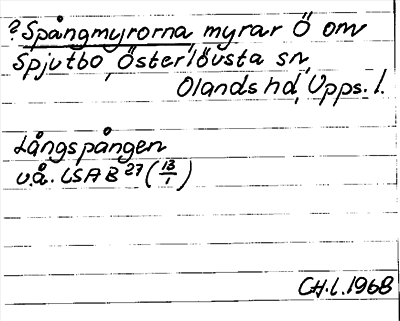 ? Spångmyrorna myrar Ö om
Spjutbo, Österlövsta sn,
Olands hd, Upps. l.
Långspången
u.å. LSA B 27 (13/1)
CH.L. 1968